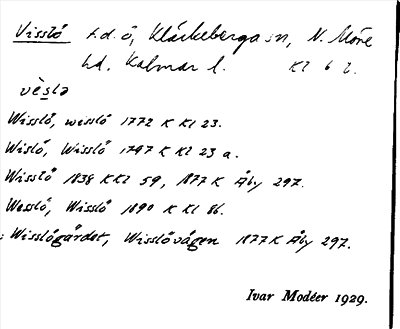 Visslö f.d. ö, Kläckeberga sn, N. Möre
hd, Kalmar l. Kl 6 l.
vèslə
Wisslö, wisslö 1772 K Kl 23.
Wislö, Wisslö 1797 K Kl 23 a.
Wisslö 1838 K Kl 59, 1877 K Åby 297.
Wesslö, Wisslö 1890 K Kl 86.
Wisslögärdet, Wisslövägen 1877 K Åby 297.
Ivar Modéer 1929.